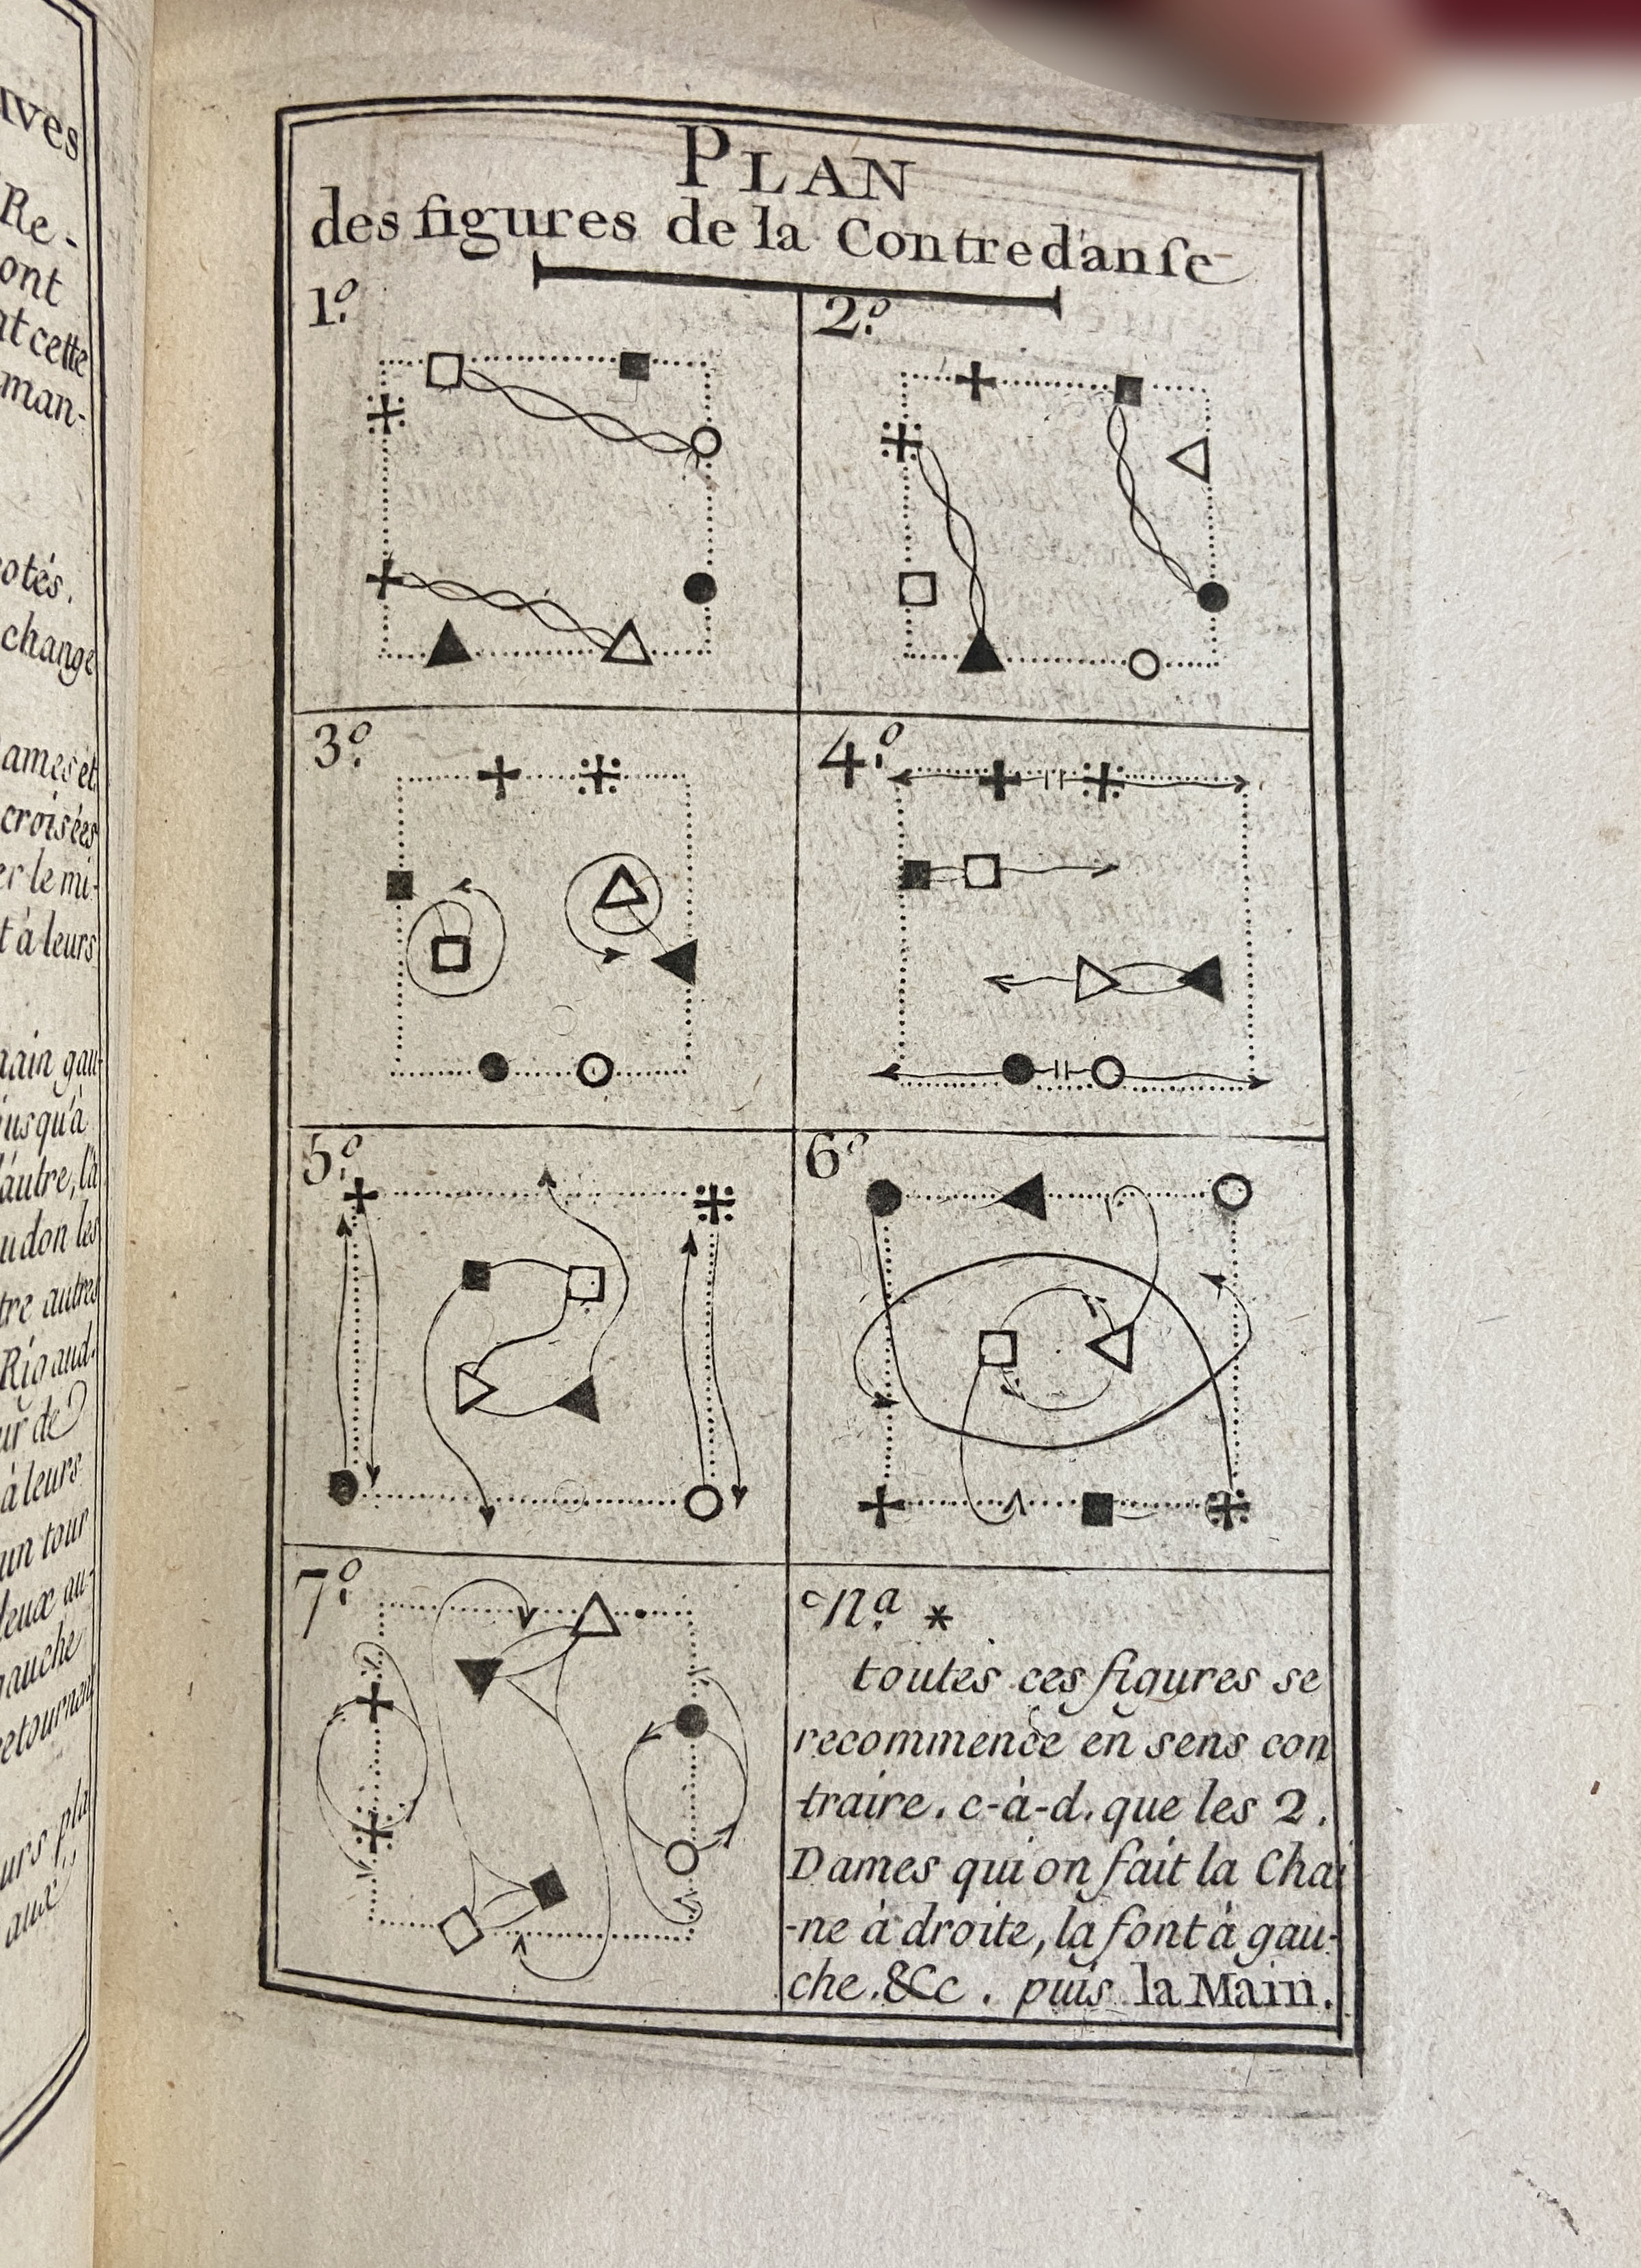 ives
Re-
ont
at cette
man-
otés.
change
ames et
croisées
er le mi-
t à leurs
main gau-
jusqu'à
l'autre, l'a
udon les
tre autres
Rigaud.
ur de
à leurs
un tour
deux au-
gauche
retournent
urs pla
aux
PLAN
des figures de la Contred'anse
1.º
2.º
3.º
4.º
5.º
6.º
7.º
Nª. *
toutes ces figures se
recommence en sens con
traire. c-à-d. que les 2.
Dames qui on fait la Chai
-ne à droite, la font à gau-
che. &c. puis la Main.